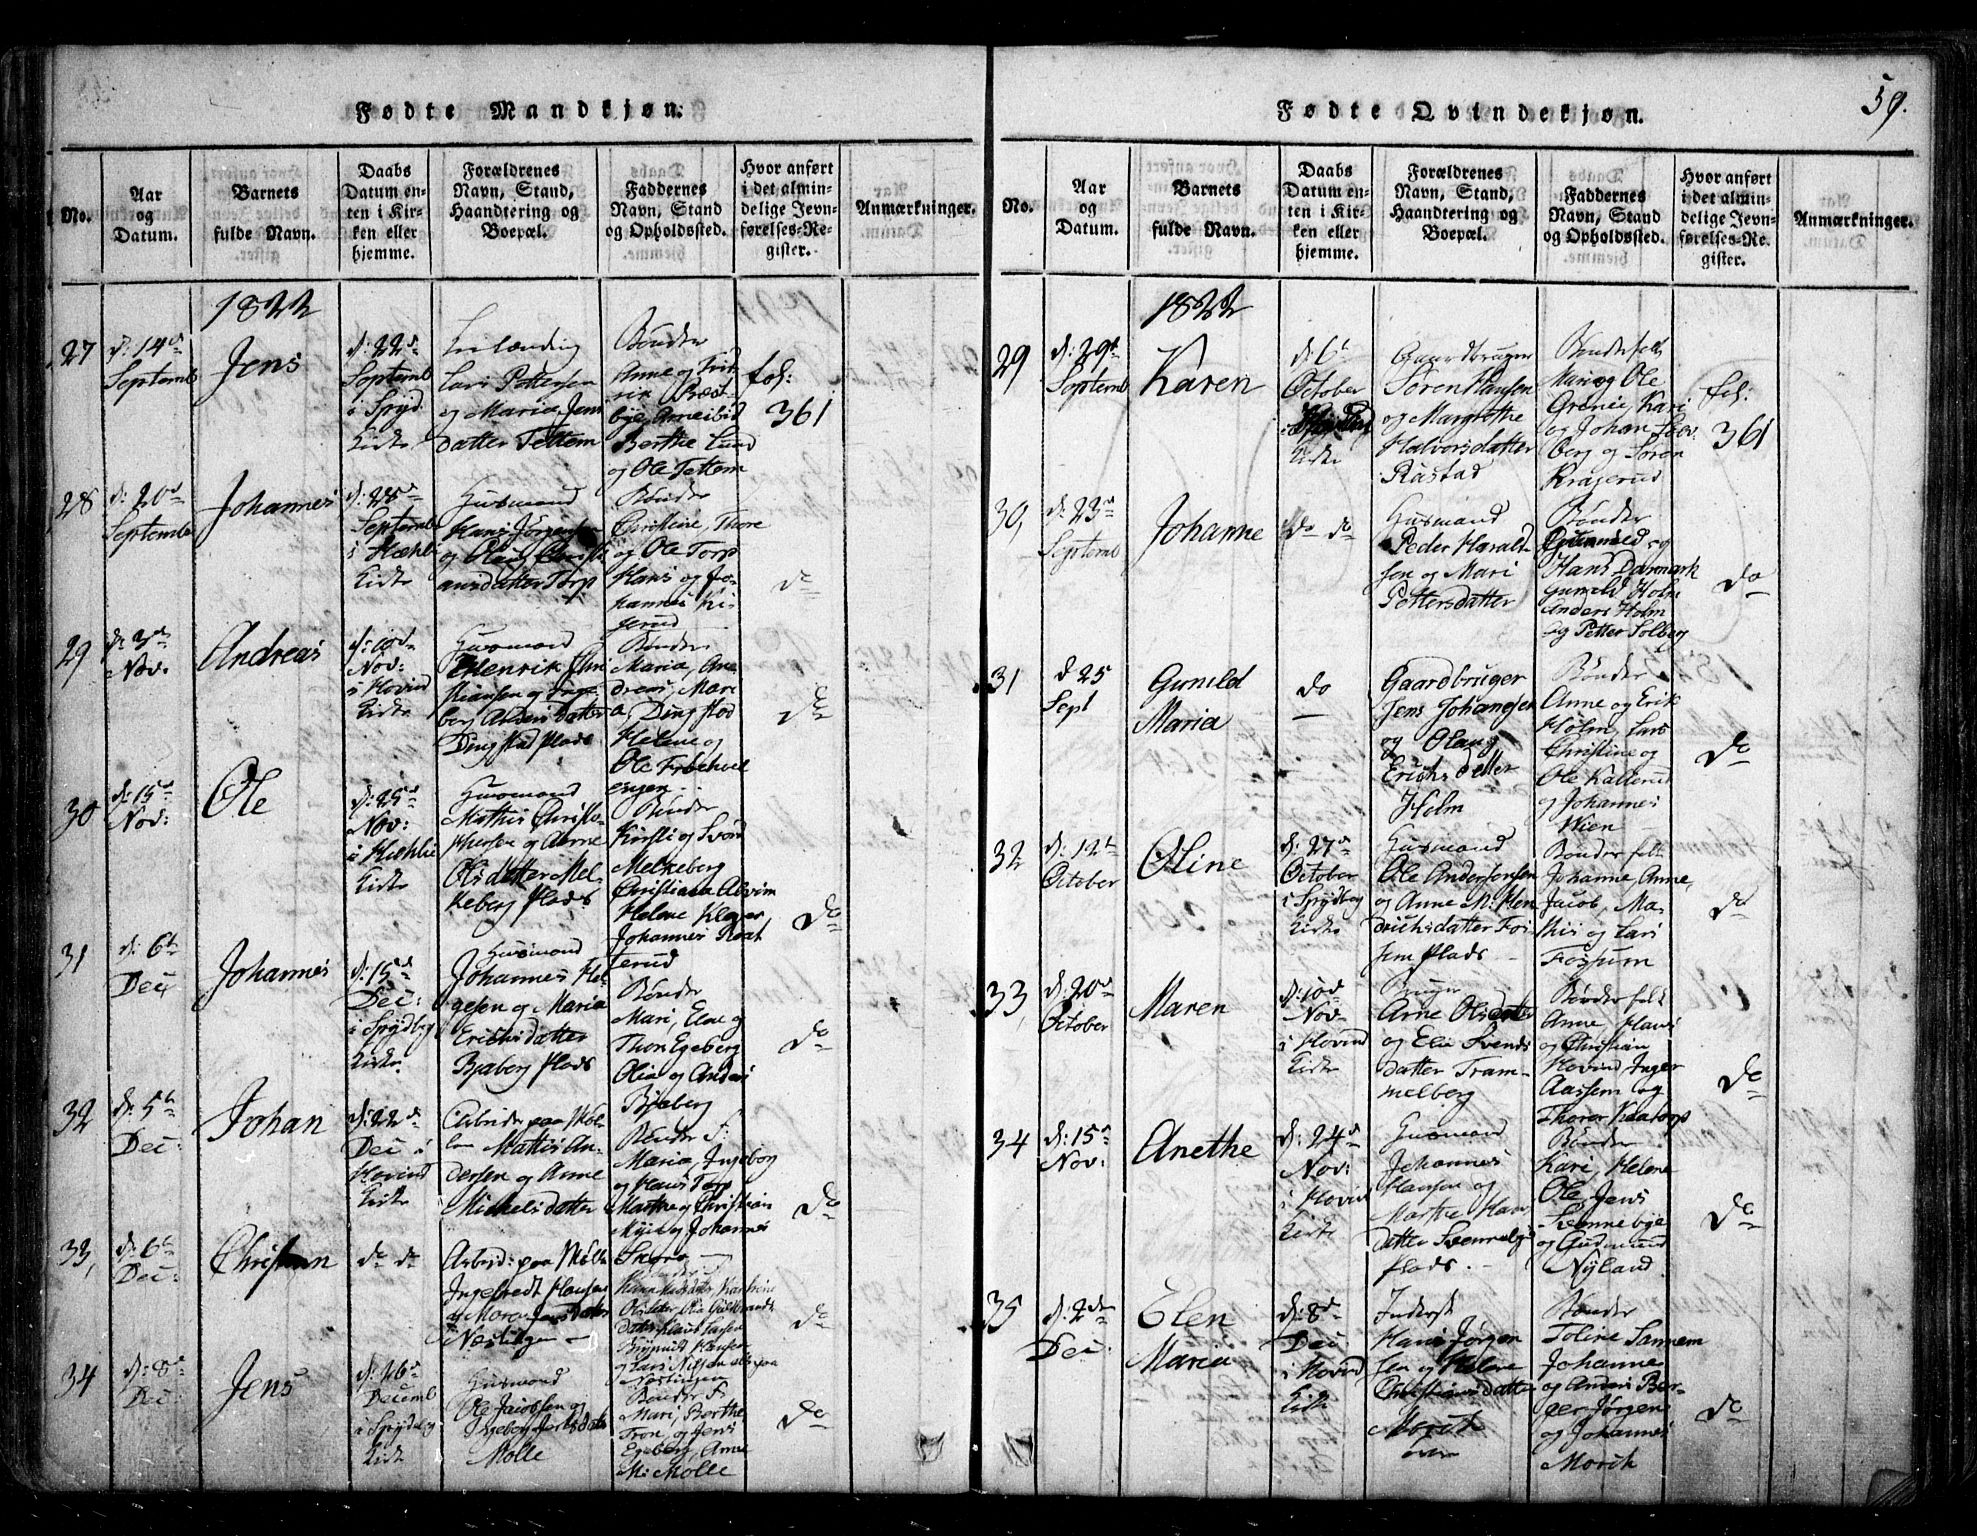 59.
Fødte Mandkjøn.
No.
Aar
og
Datum.
Barnets
fulde Navn.
Daabs
Datum en-
ten i Kir-
ken eller
hjemme.
Forældrenes
Navn, Stand,
Haandtering og
Boepæl.
Faddernes
Navn, Stand
og Opholdssted.
Hvor anført
i det almin-
delige Jevn-
førelses-Re-
gister.
Anmærkninger.
1822
27
d: 14d
Septemb
Jens
d: 22d
Septemb
i Spydb.
Kirke
Lars Pettersen
og Maria Jens
datter Tettem
Bønder
Anne og
Berthe Lund
og Ole Tettem
fol:
361
28
d: 20d
Septemb
Johannes
d: 25d
Septemb
i Hæhli
Kirke
Husmand
Hans Jörgensen
og Olea Christi
ansdatter Torp
Bønder
Christine, Thore
og Ole Torp
Hans og Jo-
hannes Ki-
serud
do
29
d: 3de
Nov.
Andreas
d: 10d
Nov:
i Hovind
Kirke
Husmand
Henrik Chri
stiansen og Inge
berg Anders datter
Dingstad plads
Bønder
Maria, An
dreas, Mari
a Dingstad
Helene og
Ole
do
30
d: 15d
Nov:
Ole
d: 25d
Nov:
i Hæhlie
Kirke
Husmand
Mathis Christo-
phersen og Anne
Olsdatter Mel-
leberg plads
Bønder
Kirsti og
Melleberg
Christiana Alvim
Helene Kloper
Johannes
terud
do
31
d: 6t
Dec
Johannes
d: 15d
Dec:
i Spydberg
Kirke
Husmand
Johannes Hel-
gesen og Maria
Erichsdatter
Bjaberg plads
Bønder
Mari, Else og
Thon Egeberg
Olia og Anders
Bjaberg
do
32
d: 5t
Dec:
Johan
d: 22d
Dec: i
Hovind
Kirke
Arbeider paa Möl-
len Mathis An-
dersen og Anne
Michelsdatter
Bönder f:
Maria, Ingeborg
og Hans Torp
Marthe og Christian
Myie og Johannes
Skøro
do
33,
d: 6t
Dec:
Christian
do do
Arbeid: paa Mölle
Ingebredt Hansen
og Maren
Næslingen
do
34
d: 8d
Dec:
Jens
d: 26d
Decemb
i Spydberg
Kirke
Husmand
Ole Jacobsen og
Ingeborg
Mölle
Bønder f
Mari, Berthe
Tron, og Jens
Egeberg, Anne
M: Mölle
do
Fødte Qvindekjøn.
No.
Aar
og
Datum.
Barnets
fulde Navn.
Daabs
Datum en-
ten i Kir-
ken eller
hjemme.
Forældrenes
Navn, Stand,
Haandtering og
Boepæl.
Faddernes
Navn, Stand
og Opholdssted.
Hvor anført
i det almin-
delige Jevn-
førelses-Re-
gister.
Anmærkninger.
1822
29
d: 29d
Septemb
Karen
d: 6t
October
Kirke
Gaardbruger
Søren Hansen
og Margrethe
Halvorsdatter
Råstad
Bønderfolk
Mari og Ole
Grönie, Kari
og Johan Løv
berg og Søren
Kragerud
fol:
361
30,
d: 23d
Septemb
Johanne
do do
Husmand
Peder Harald-
sen og Mari
Pettersdatter
Bønder
og
Hans Danmark
Gunild Holm
Anders Holm
og Petter Solberg
do
31
d 25
Sept
Gunild
Maria
do
Gaardbruger
Jens Johansen
og Olaug
Erichsdatter
Holm
Bönder
Anne og Erik
Holm, Lars
Christine og
Ole Kallerud
og Johannes
Wien
do
32
d: 12t
October
Oline
d: 27d
October
i Spydberg
Kirke
Husmand
Ole Andersensen
og Anne M: Hen
drichsdatter Fos
sum plads
Bönder folk
Johanne, Anne,
Jacob, Ma-
this og Lars
Fossum
do
33,
d: 20d
October
Maren
d: 10d
Nov:
i Hovind
Kirke
Bruger
Arne Olsen
og Elie Svends
datter Tram-
melberg
Bönder folk
Anne Hans
og Christian
Hovind, Inger
Aassem og
Thorer
do
34
d: 15d
Nov:
Anethe
d: 24d
Nov:
i Hovind
Kirke
Husmand
Johannes
Hansen og
Marthe Hans
datter
plads.
Bönder
Kari, Helene
Ole, Jens
Svennebye
og Gudmund
Nyland
do
35
d: 2den
Dec:
Elen
Maria
d: 8d
Dec
i Hovind
Kirke
Inderst
Hans Jørgen
sen og Helene
Christiansdatter
Morik
Bønder
Toline Sannem
Johanne
og Anders Ber-
ger Jörgen
og Johannes
Morik
do